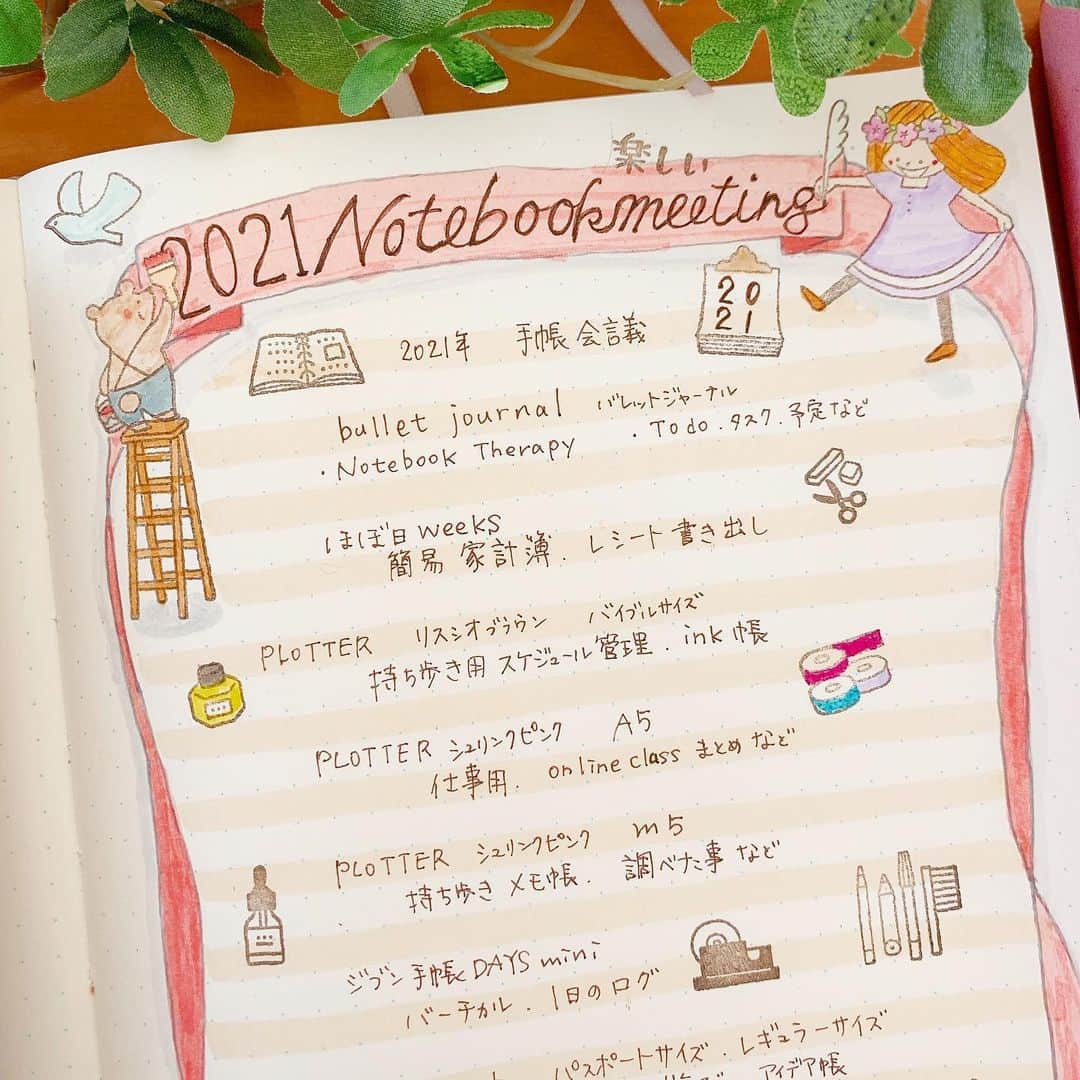 楽しい
2021 Notebookmeeting
20
21
2021年 手帳会議
bullet journal バレットジャーナル
・Notebook Therapy ・Todo.タスク.予定など
ほぼ日weeks
簡易家計簿.レシート書き出し
PLOTTER リスシオブラウン バイブルサイズ
持ち歩き用スケジュール管理.ink帳
PLOTTER シュリンクピンク A5
仕事用.onlineclassまとめなど
PLOTTER シュリンクピンク m5
持ち歩きメモ帳.調べた事など
ジブン手帳DAYS mini
バーチカル.1日のログ
パスポートサイズ.レギュラーサイズ
アイデア帳